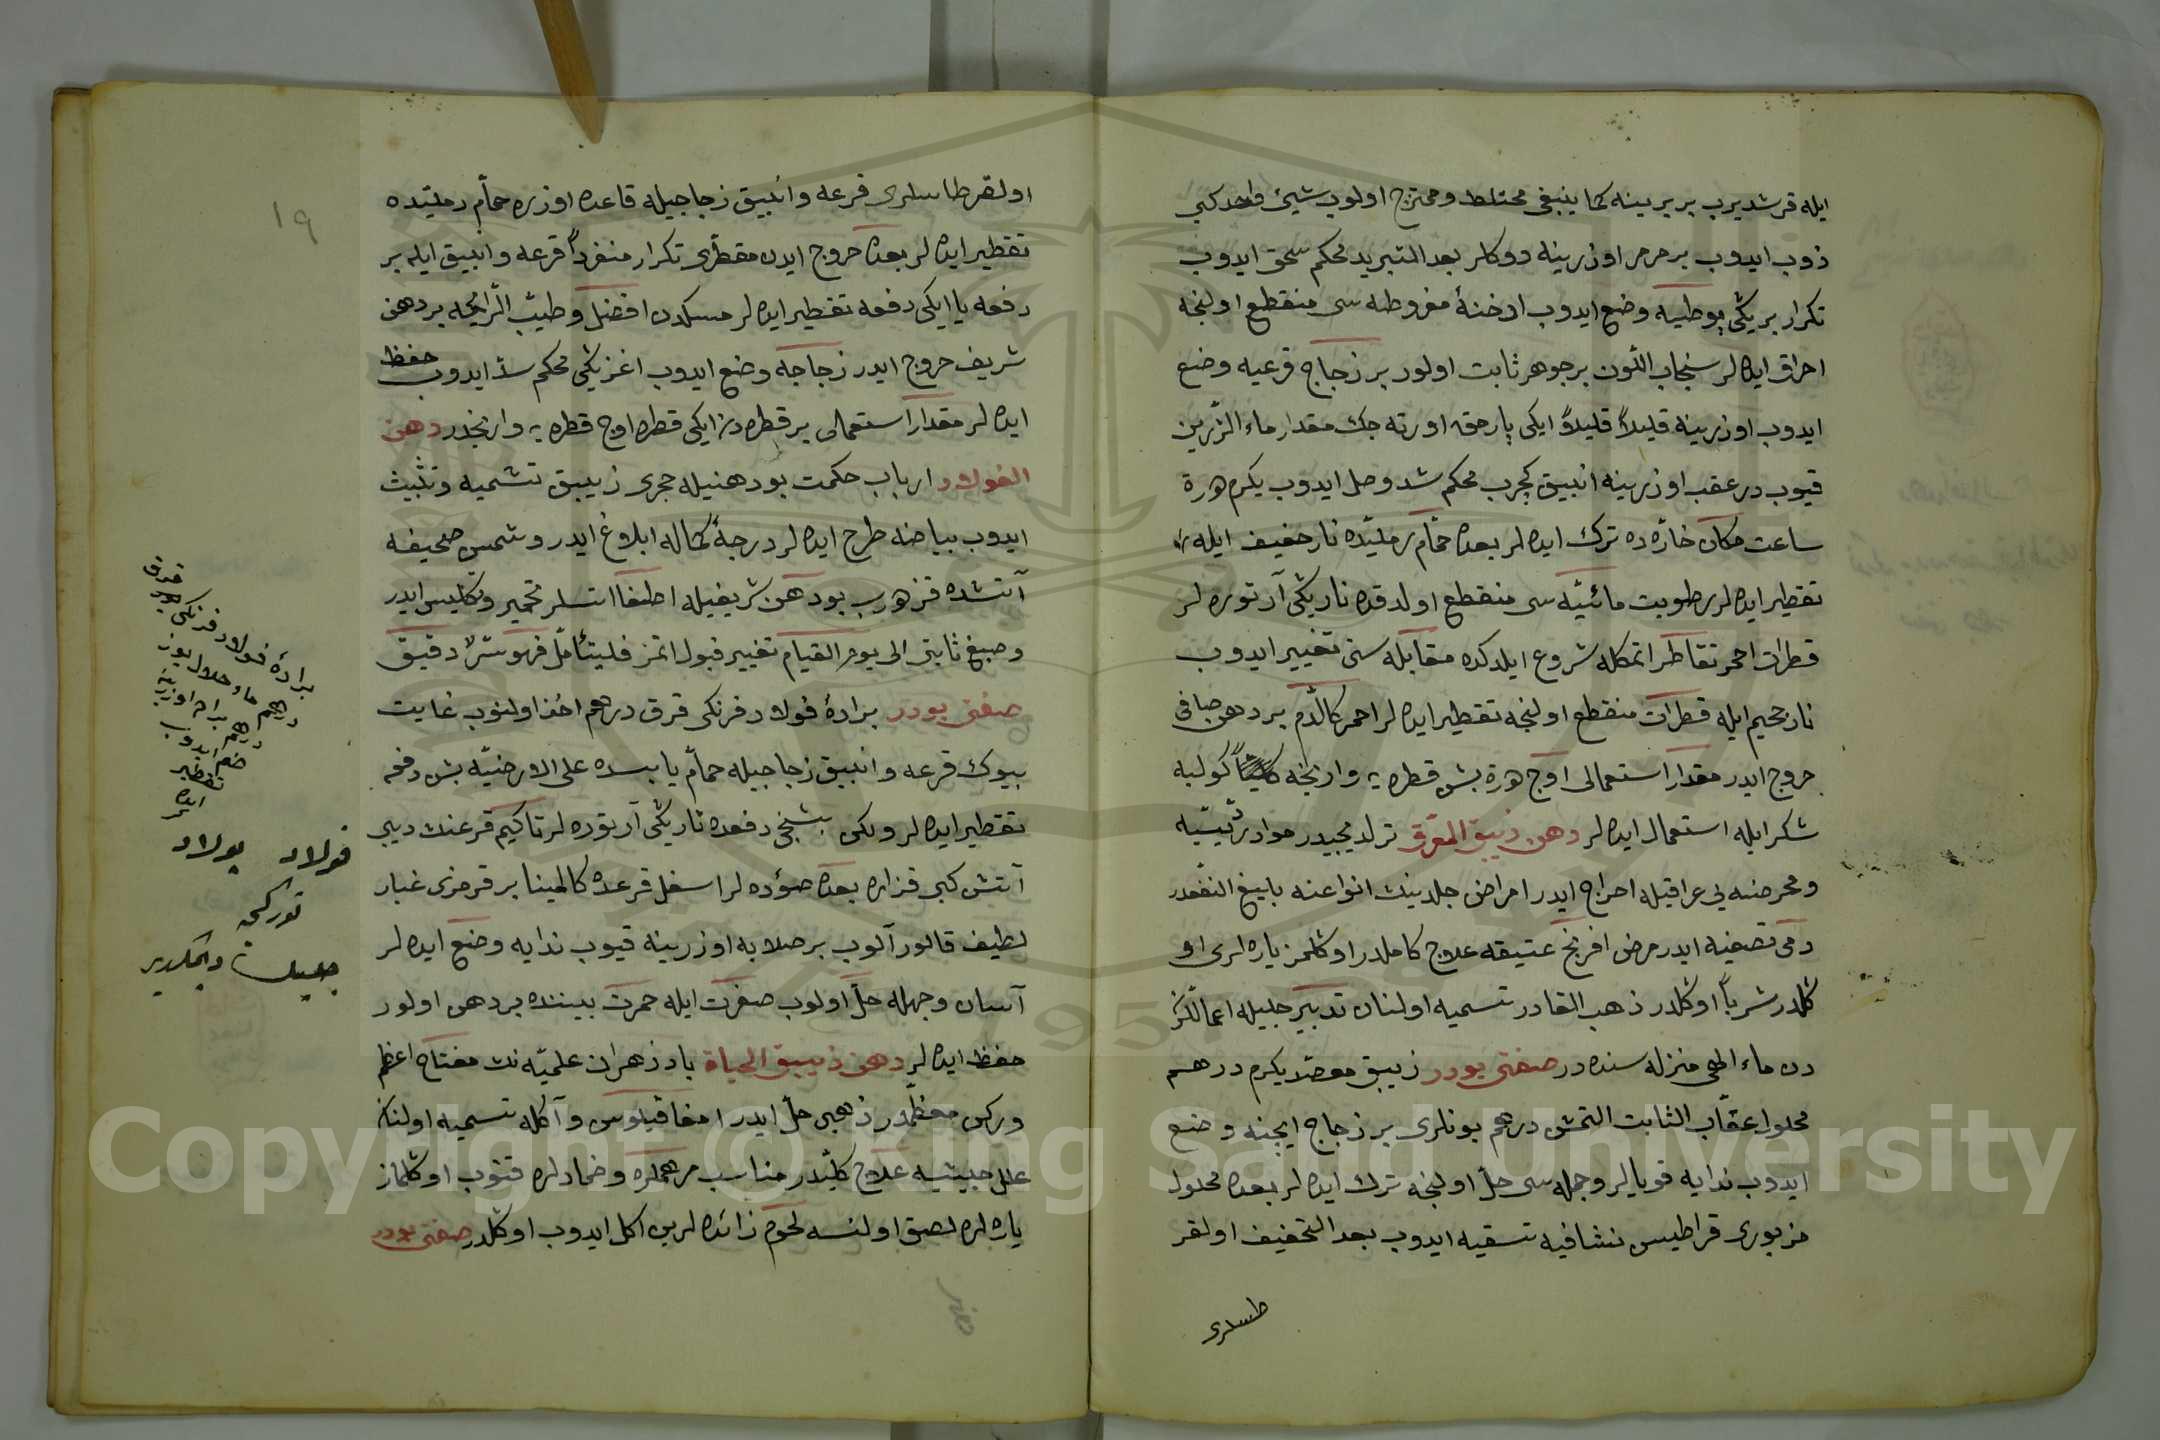 ايله قرشديرب بربرينه كما ينبغى مختلط وممتزج اولوب شيئ واحد كبى
ذوب ايدوب بر مرمر اوزرينه دوكلر بعد التبريد محكم سحق ايدوب
تكرار بر يكى بوطيه وضع ايدوب ادخنۀ مفروطه سى منقطع اولنجه
احراق ايده لر سنجاب اللون بر جوهر ثابت اولور بر زجاج قرعيه وضع
ايدوب اوزرينه قليلاً قليلاً ايكى پارمق اورته جك مقدار ماء الزرين
قيوب در عقب اوزرينه انبيق كچرب محكم شد وصل ايدوب يكرم درت
ساعت مكان حارّه ده ترك ايده لر بعده حمّام رمليّده نار خفيف ايله
تقطير ايده لر رطوبت مائيّه سى منقطع اولدقده ناريكى آرتوره لر
قطرات احمر تقاطر اتمكله شروع ايلدكده مقابله سنى تغيير ايدوب
نار جحيم ايله قطرات منقطع اولنجه تقطير ايده لر احمر كالدّم بر دهن صافى
خروج ايدر مقدار استعمالى اوچ درت بش قطره يه وارنجه كوليه
شكر ايله استعمال ايده لر دهن زيبق المعرق ترلديجيدر مواد رديّه
ومحرضه يى عراقيله اخراج ايدر امراض جلدينك انواعنه بايغ النفعدر
دمى تصفيه ايدر مرض افرنج عتيقه علاج كاملدر اوكلمز ياره لرى او
كلدر شرباً اوكلدر ذهب القادر تسميه اولنان تدبير جليله اعمالكز
دن ماء الهى منزله سنده در صنعتى بودر زيبق مصعد يكرم درهم
محلول عقاب الثابت التمش درهم بونلرى بر زجاج ايچنه وضع
ايدوب ندايه قويالر وجمله سى حلّ اولنجه ترك ايده لر بعده محلول
مزبورى قراطيس نشافيه تسقيه ايدوب بعد التخفيف اولقر
طسلرى
١٩
اولقرطاسلرى قرعه وانبيق زجاجيله قاعده اوزره حمّام رمليّده
تقطير ايده لر بعده خروج ايدن مقطرى تكرار منفرداً قرعه وانبيق ايله بر
دفعه يا ايكى دفعه تقطير ايده لر مسكدن افضل وطيّب الرّايحه بر دهن
شريف خروج ايدر زجاجه وضع ايدوب اغزيكى محكم سدّ ايدوب حفظ
ايده لر مقدار استعمالى بر قطره دن ايكى قطره اوچ قطره يه وارنجدر دهن
الفولاد ارباب حكمت بو دهنيله حجرى زيبق تشميه وتثبيث
ايدوب بياضه طرح ايده لر درجۀ كماله ابلاغ ايدر وشمس صحيفه
آتشده قزدرب بو دهن شريفيله اطفا اتسلر تخمير وتكليس ايدر
وصبغ ثابتى الى يوم القيام تغيير قبول اتمز فليتأمّل فهو سرّ دقيق
صنعتى بودر برادۀ فولاد فرنكى قرق درهم اخذ اولنوب غايت
بيوك قرعه وانبيق زجاجيله حمّام يابسده على الارضيّه بش دفعه
تقطير ايده لر ولكن بشنجى دفعده ناريكى آرتوره لر تاكيم قرعنك ديبى
آتش كبى قزاره بعده صوؤده لر اسفل قرعده كالمينا بر قرمزى غبار
لطيف قالور آلوب بر صلابه اوزرينه قيوب ندايه وضع ايده لر
آسان وجهله حلّ اولوب صفرت ايله حمرت بيننده بر دهن اولور
حفظ ايده لر دهن زيبق الحياة بادزهران علميّه نك مفتاح اعظم
وركن معظمدر ذهبى حلّ ايدر امغاقيلوس وآكله تسميه اولنان
علل خبيثيه علاج كلّيدر مناسب مرهملره وضمادلره قتوب اوكلماز
ياره لره لصق اولنسه لحوم زائده لرين اكل ايدوب اوكلدر صنعتى بودر
برادۀ فولاد فرنكى قرق
درهم ماء حلال يوز
درهم براده اوزرينه
ضم ايدوب
تقطير
ايده
لر
فولاد پولاد
توركجه
چليك ديمكدير